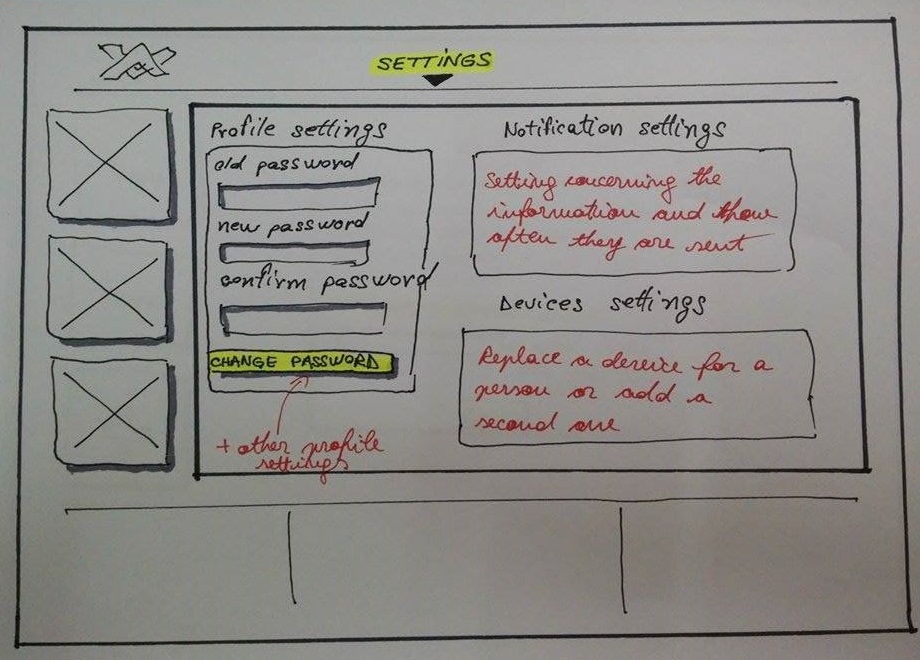 SETTINGS
Profile settings
old password
new password
confirm password
CHANGE PASSWORD
+ other profile
settings
Notification settings
Setting concerning the
information and how
often they are sent
Devices settings
Replace a device for a
person or add a
second one